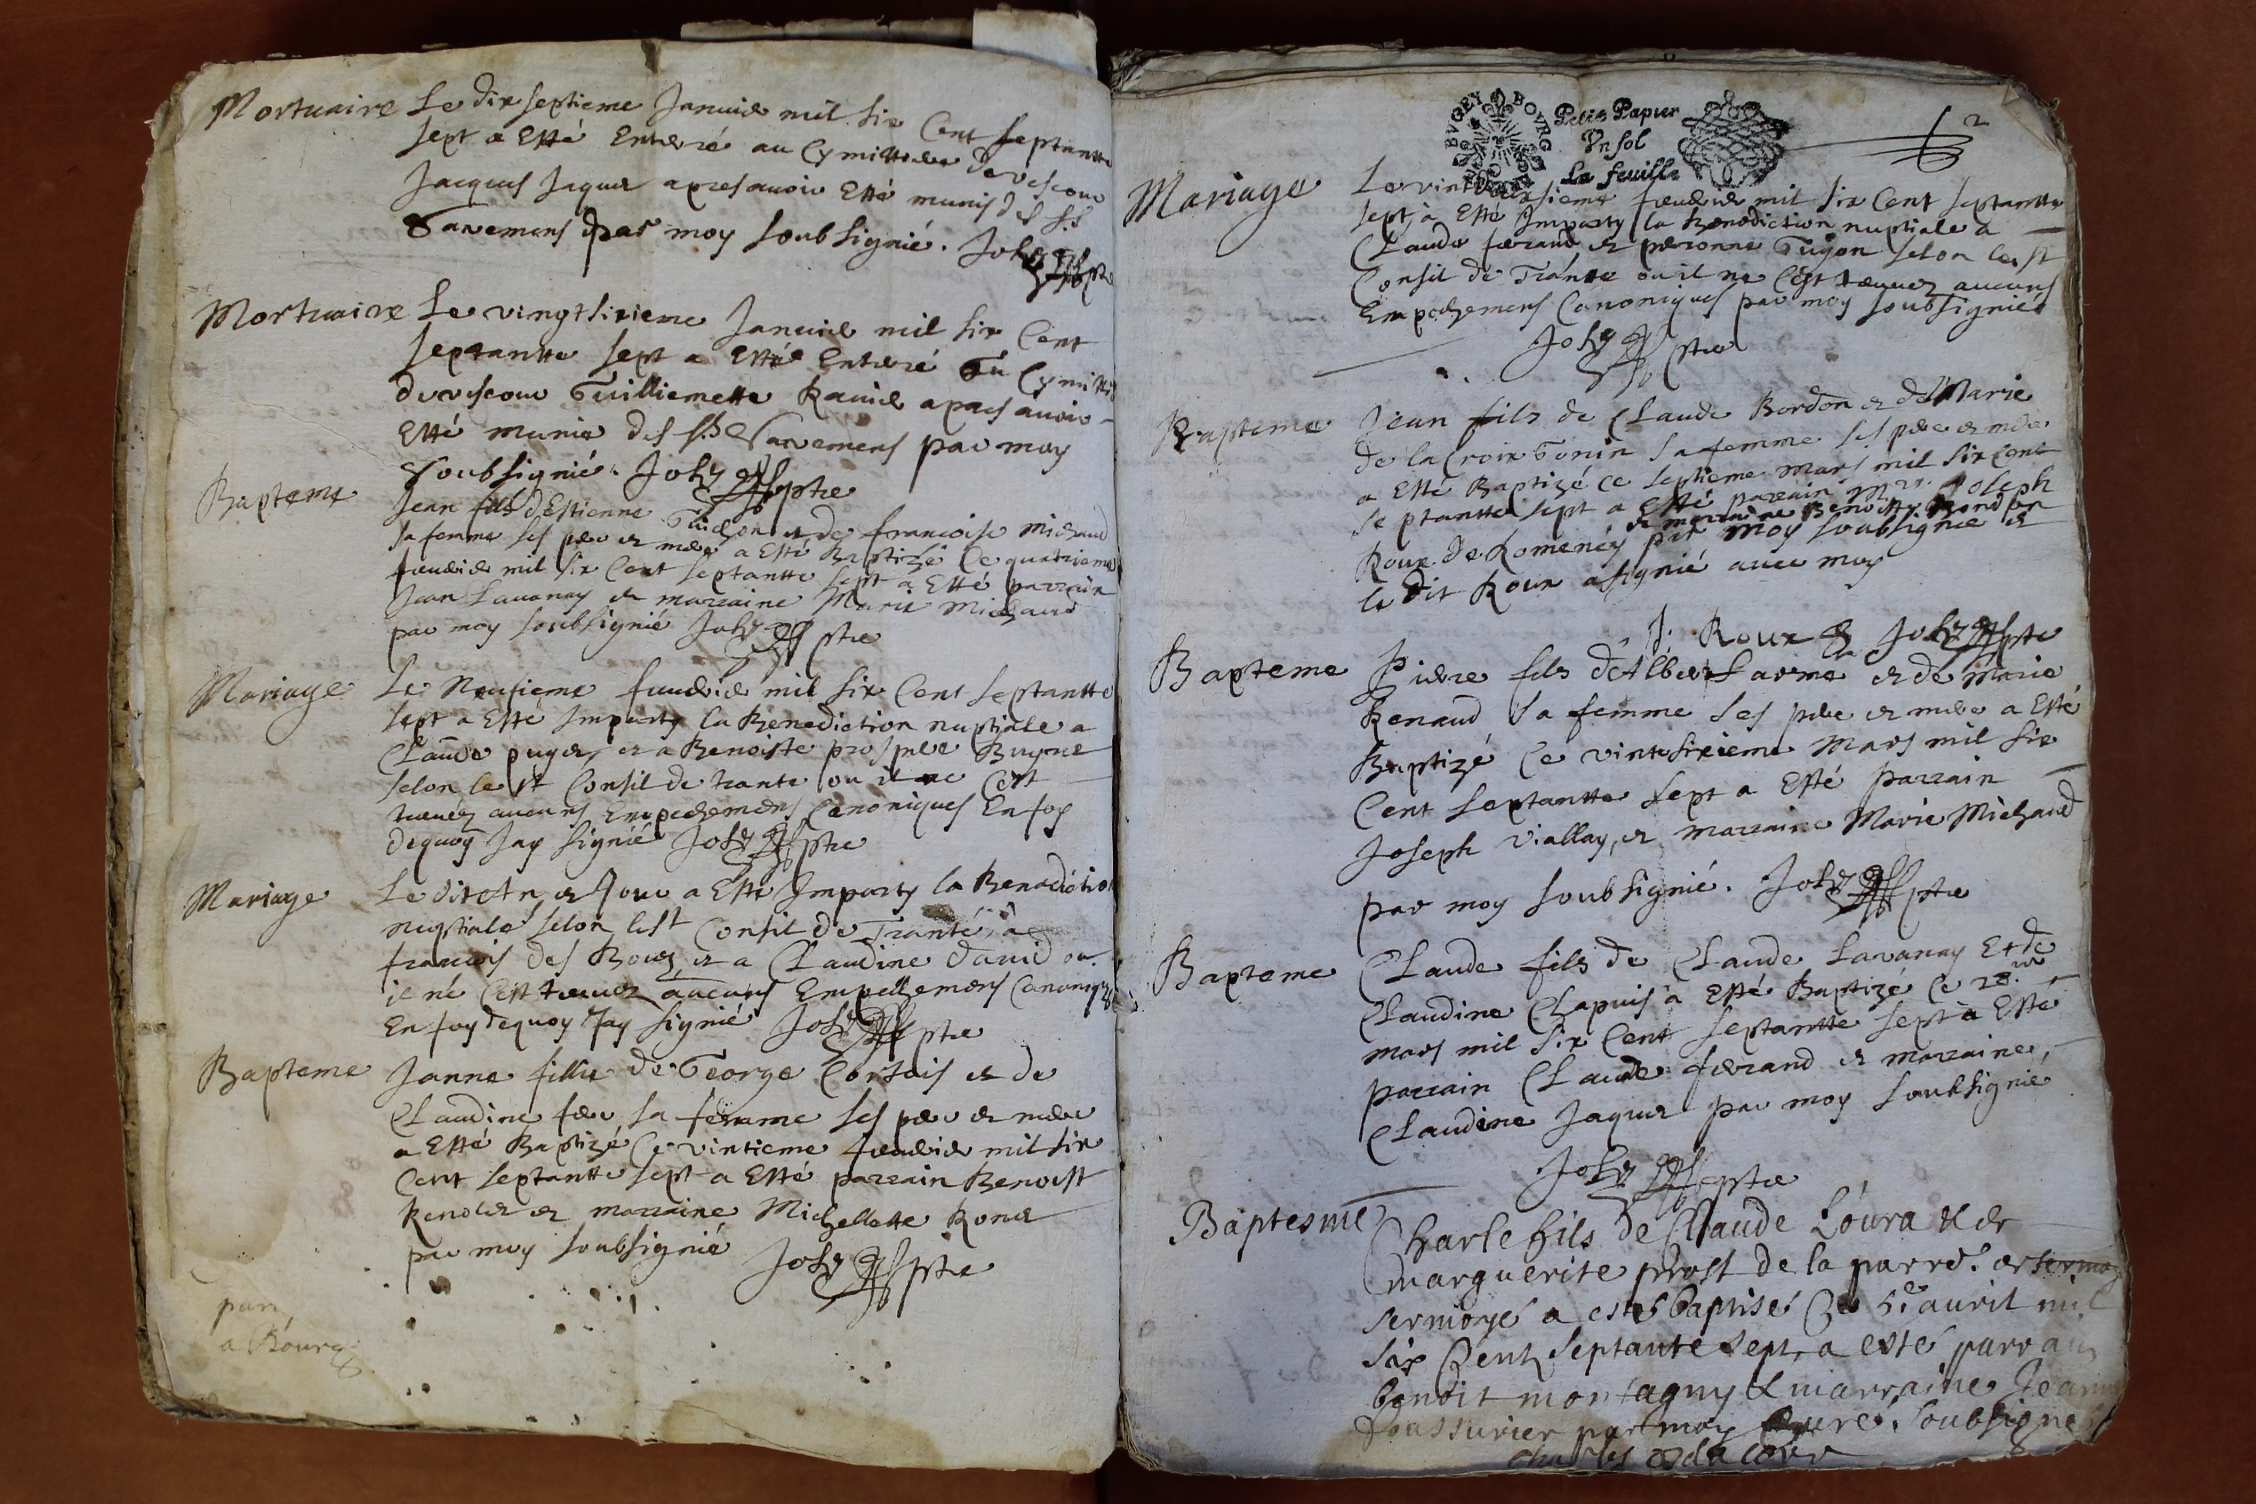 Mortuaire
Le dix septieme Januier mil six Cent septantte
sept a Esté Enterré au Cymittiere de vescour
Jacques Jaquet apres auoir Esté munis des S.S
Sacremens par moy soubsignié. Joly ptre
Mortuaire
Le vingtsixieme Januier mil six Cent
septantte sept a Esté Enterré au Cymitti
de vescour Guilliemette Rauier apres auoir
Esté munie des S.S Sacremens par moy
Soubsignié. Joly ptre
Bapteme
Jean fils d'Estienne Guichon et de francoise michaud
sa femme ses pere et mere a Esté Baptizé Ce quatrieme
feurier mil six Cent septantte sept a Esté parrain
Jean Lauanay et marraine Marie Michaud
par moy soubsignié Joly ptre
Mariage
Le Neufieme feurier mil six Cent septantte
sept a Esté Imparty la Benediction nuptiale a
Claude puget, et a Benoiste prospere
selon le st Consil de trante ou il ne C'est
treuéz aucuns Empechemens Canoniques En foy
dequoy Jay signié Joly ptre
Mariage
Le dit An et Jour a Esté Imparty la Benediction
nuptiale selon le st Consil de Trante, a
francois des Bouz et a Claudine dauid ou
il ne C'est treuuez aucuns Empechemens Canoniq
En foy dequoy Jay signié Joly ptre
Bapteme
Janne fillie de George Cortois et de
Claudine feu sa femme ses pere et mere
a Esté Baptizé Ce vintieme feurier mil six
Cent septantte sept a Esté parrain Benoist
Renolet et marraine Michellette
par moy soubsignié Joly ptre
par
a Bourg
BVGEY BOVRG
Petit Papier
Vn sol
La feuille
2
Mariage
Le vint sieme feurier mil six Cent septantte
sept à Esté Imparty la Benediction nuptiale a
Claude ferrand et peronne Guion selon le st
Consil de Trantte ou il ne C'est treuuez aucuns
Empechemens Canoniques par moy soubsignié
Joly ptre
Bapteme
Jean fils de Claude Bordon et de Marie
de la Croix Gonin sa femme ses pere et mere
a Esté Baptizé ce septieme Mars mil six Cent
septantte sept a Esté parrain Mre. Joseph
et marraine Benoitte
Roux de Romeney par moy soubsignié et
le dit Roux a signié auec moy
J. Roux Joly ptre
Bapteme
Pierre fils d'Albert Larme et de Marie
Renaud sa femme ses pere et mere a Esté
Baptizé Ce vintesixieme Mars mil six
Cent septantte sept a Esté parrain
Joseph viallay, et marraine Marie Michaud
par moy soubsignié. Joly ptre
Bapteme
Claude fils de Claude Lauanay Et de
Claudine Chapuis a Esté Baptizé Ce 28.me
mars mil six Cent septantte sept à Esté
parrain Claude ferrand et marraine,
Claudine Jaquet par moy soubsignié
Joly ptre
Baptesme
Charle fils de Claude Loura & de
Marguerite prost de la parre. de sermoy
sermoyé a esté baptisé Ce 5.e auril mil
six Cent septante sept, a esté parrain
benoit montagny & marraine Jeann
par moy curé soubsigne